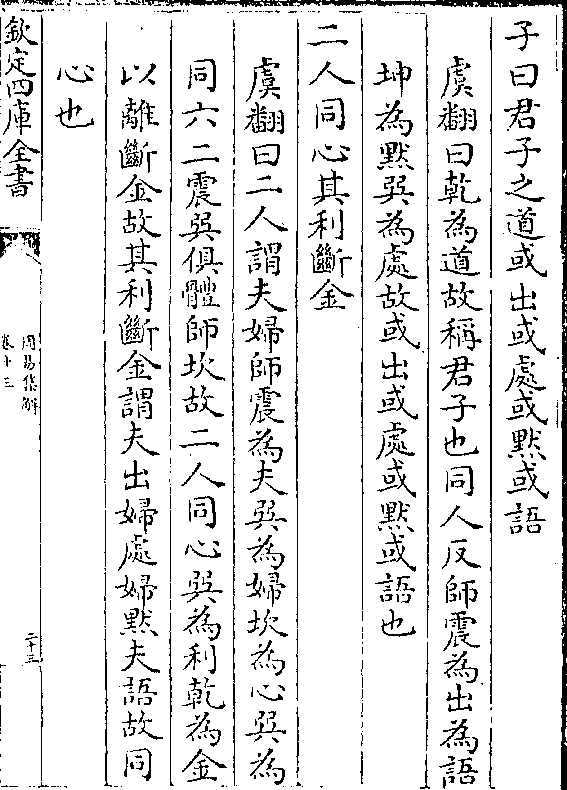 子曰君子之道或出或處或黙或語
虞翻曰乾為道故稱君子也同人反師震為出為語
坤為黙巽為處故或出或處或黙或語也
二人同心其利斷金
虞翻曰二人謂夫婦師震為夫巽為婦坎為心巽為
同六二震巽俱體師坎故二人同心巽為利乾為金
以離斷金故其利斷金謂夫出婦處婦黙夫語故同
心也
欽定四庫全書
周易集解
卷十三
二十三